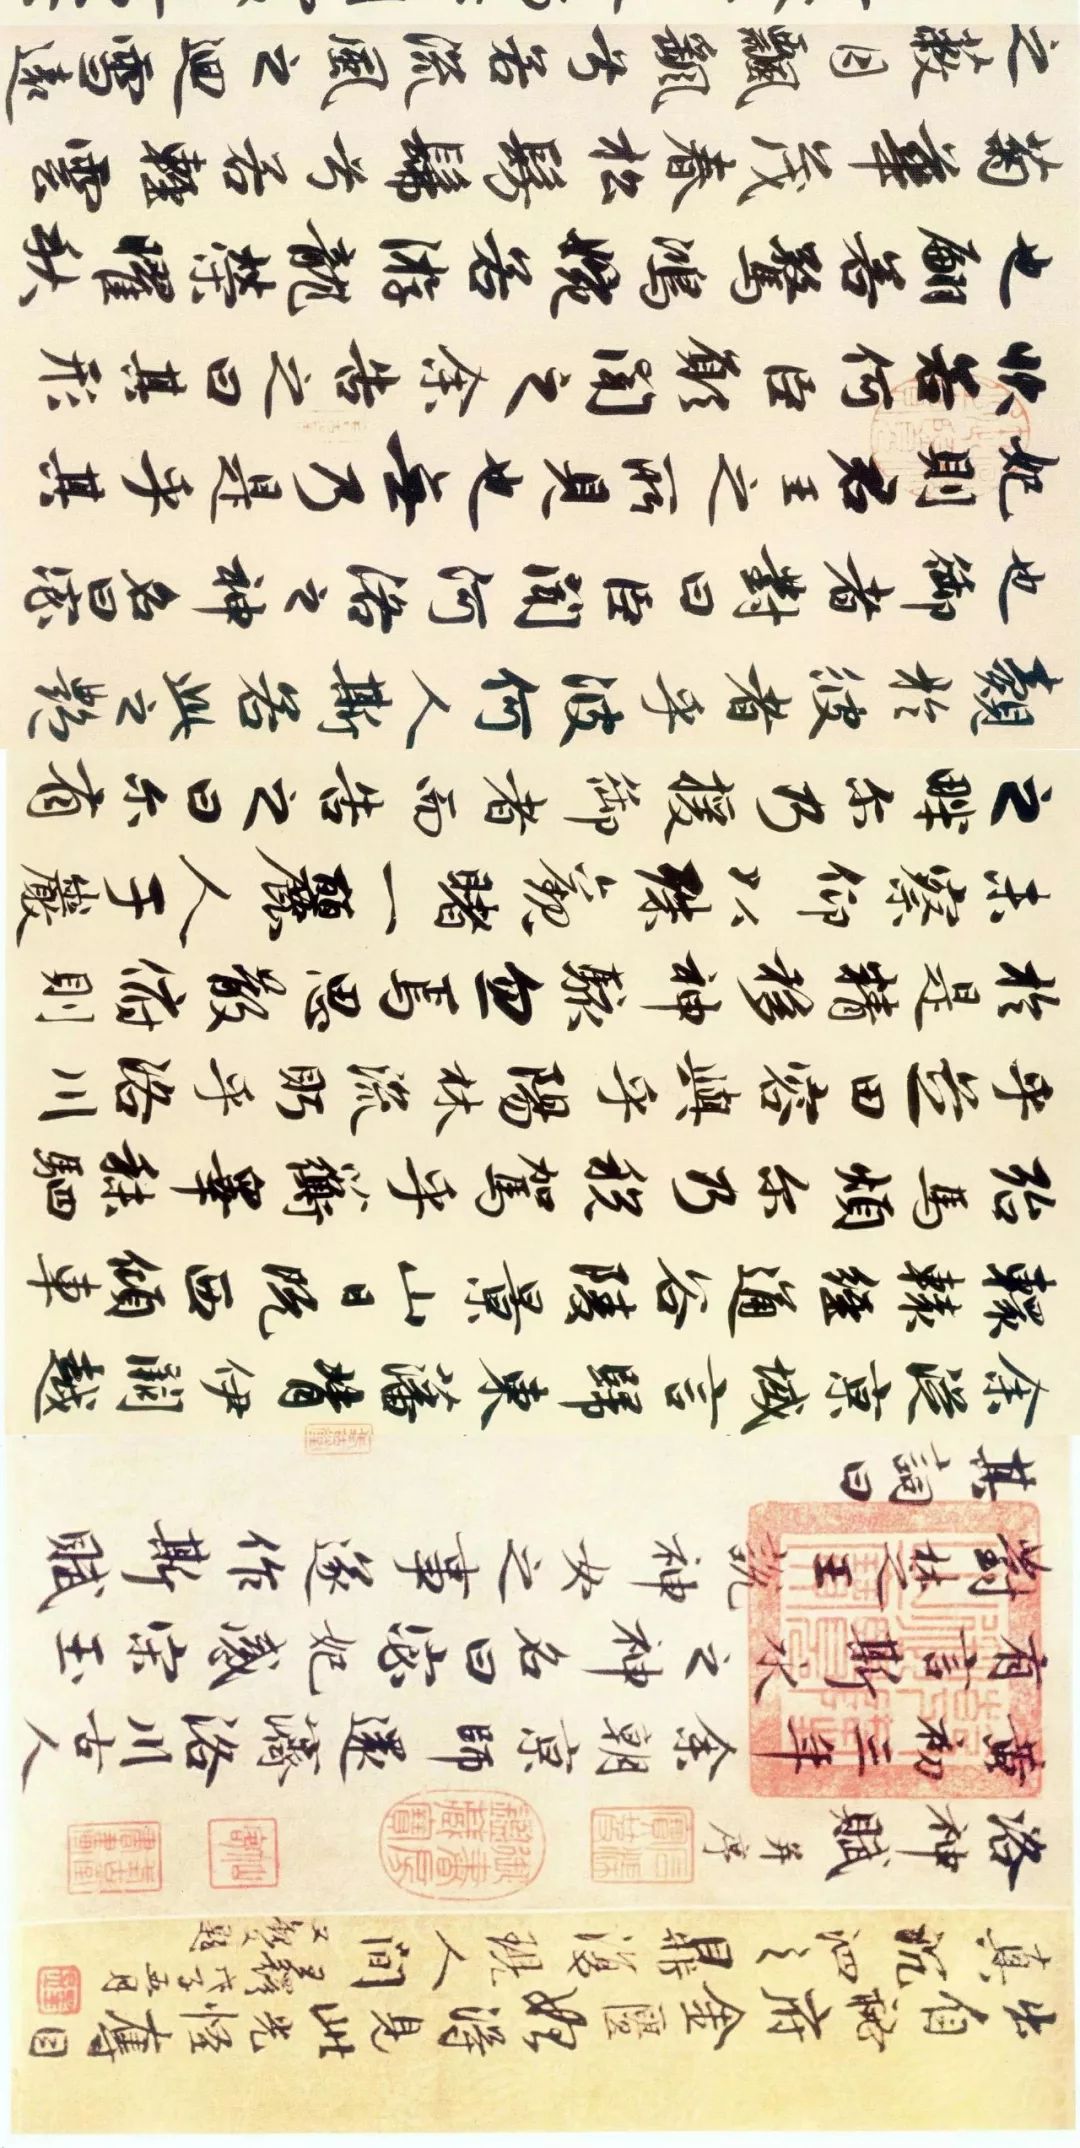 出自秘府金匱得見此光怪奪目
真沉泗之鼎復現人間
王鐸戊子五月
洛神賦 并序
黃初三年余朝京師還濟洛川古人
有言斯水之神名曰宓妃感宋玉
對楚王說神女之事遂作斯賦
其詞曰
余從京域言歸東藩背伊闕越
轘轅經通谷陵景山日既西傾車
殆馬煩尓乃稅駕乎蘅皋秣駟
乎芝田容與乎陽林流眄乎洛川
於是精移神駭忽焉思散俯則
未察仰以殊觀睹一麗人于巖
之畔尓乃援御者而告之曰尓有
覿於彼者乎彼何人斯若此之艷
也御者對曰臣聞河洛之神名曰宓
妃則君王之所見也無乃是乎其
狀若何臣願聞之余告之曰其形
也翩若驚鴻婉若游龍榮曜秋
菊華茂春松髣髴兮若輕雲
之蔽月飄飖兮若流風之迴雪遠